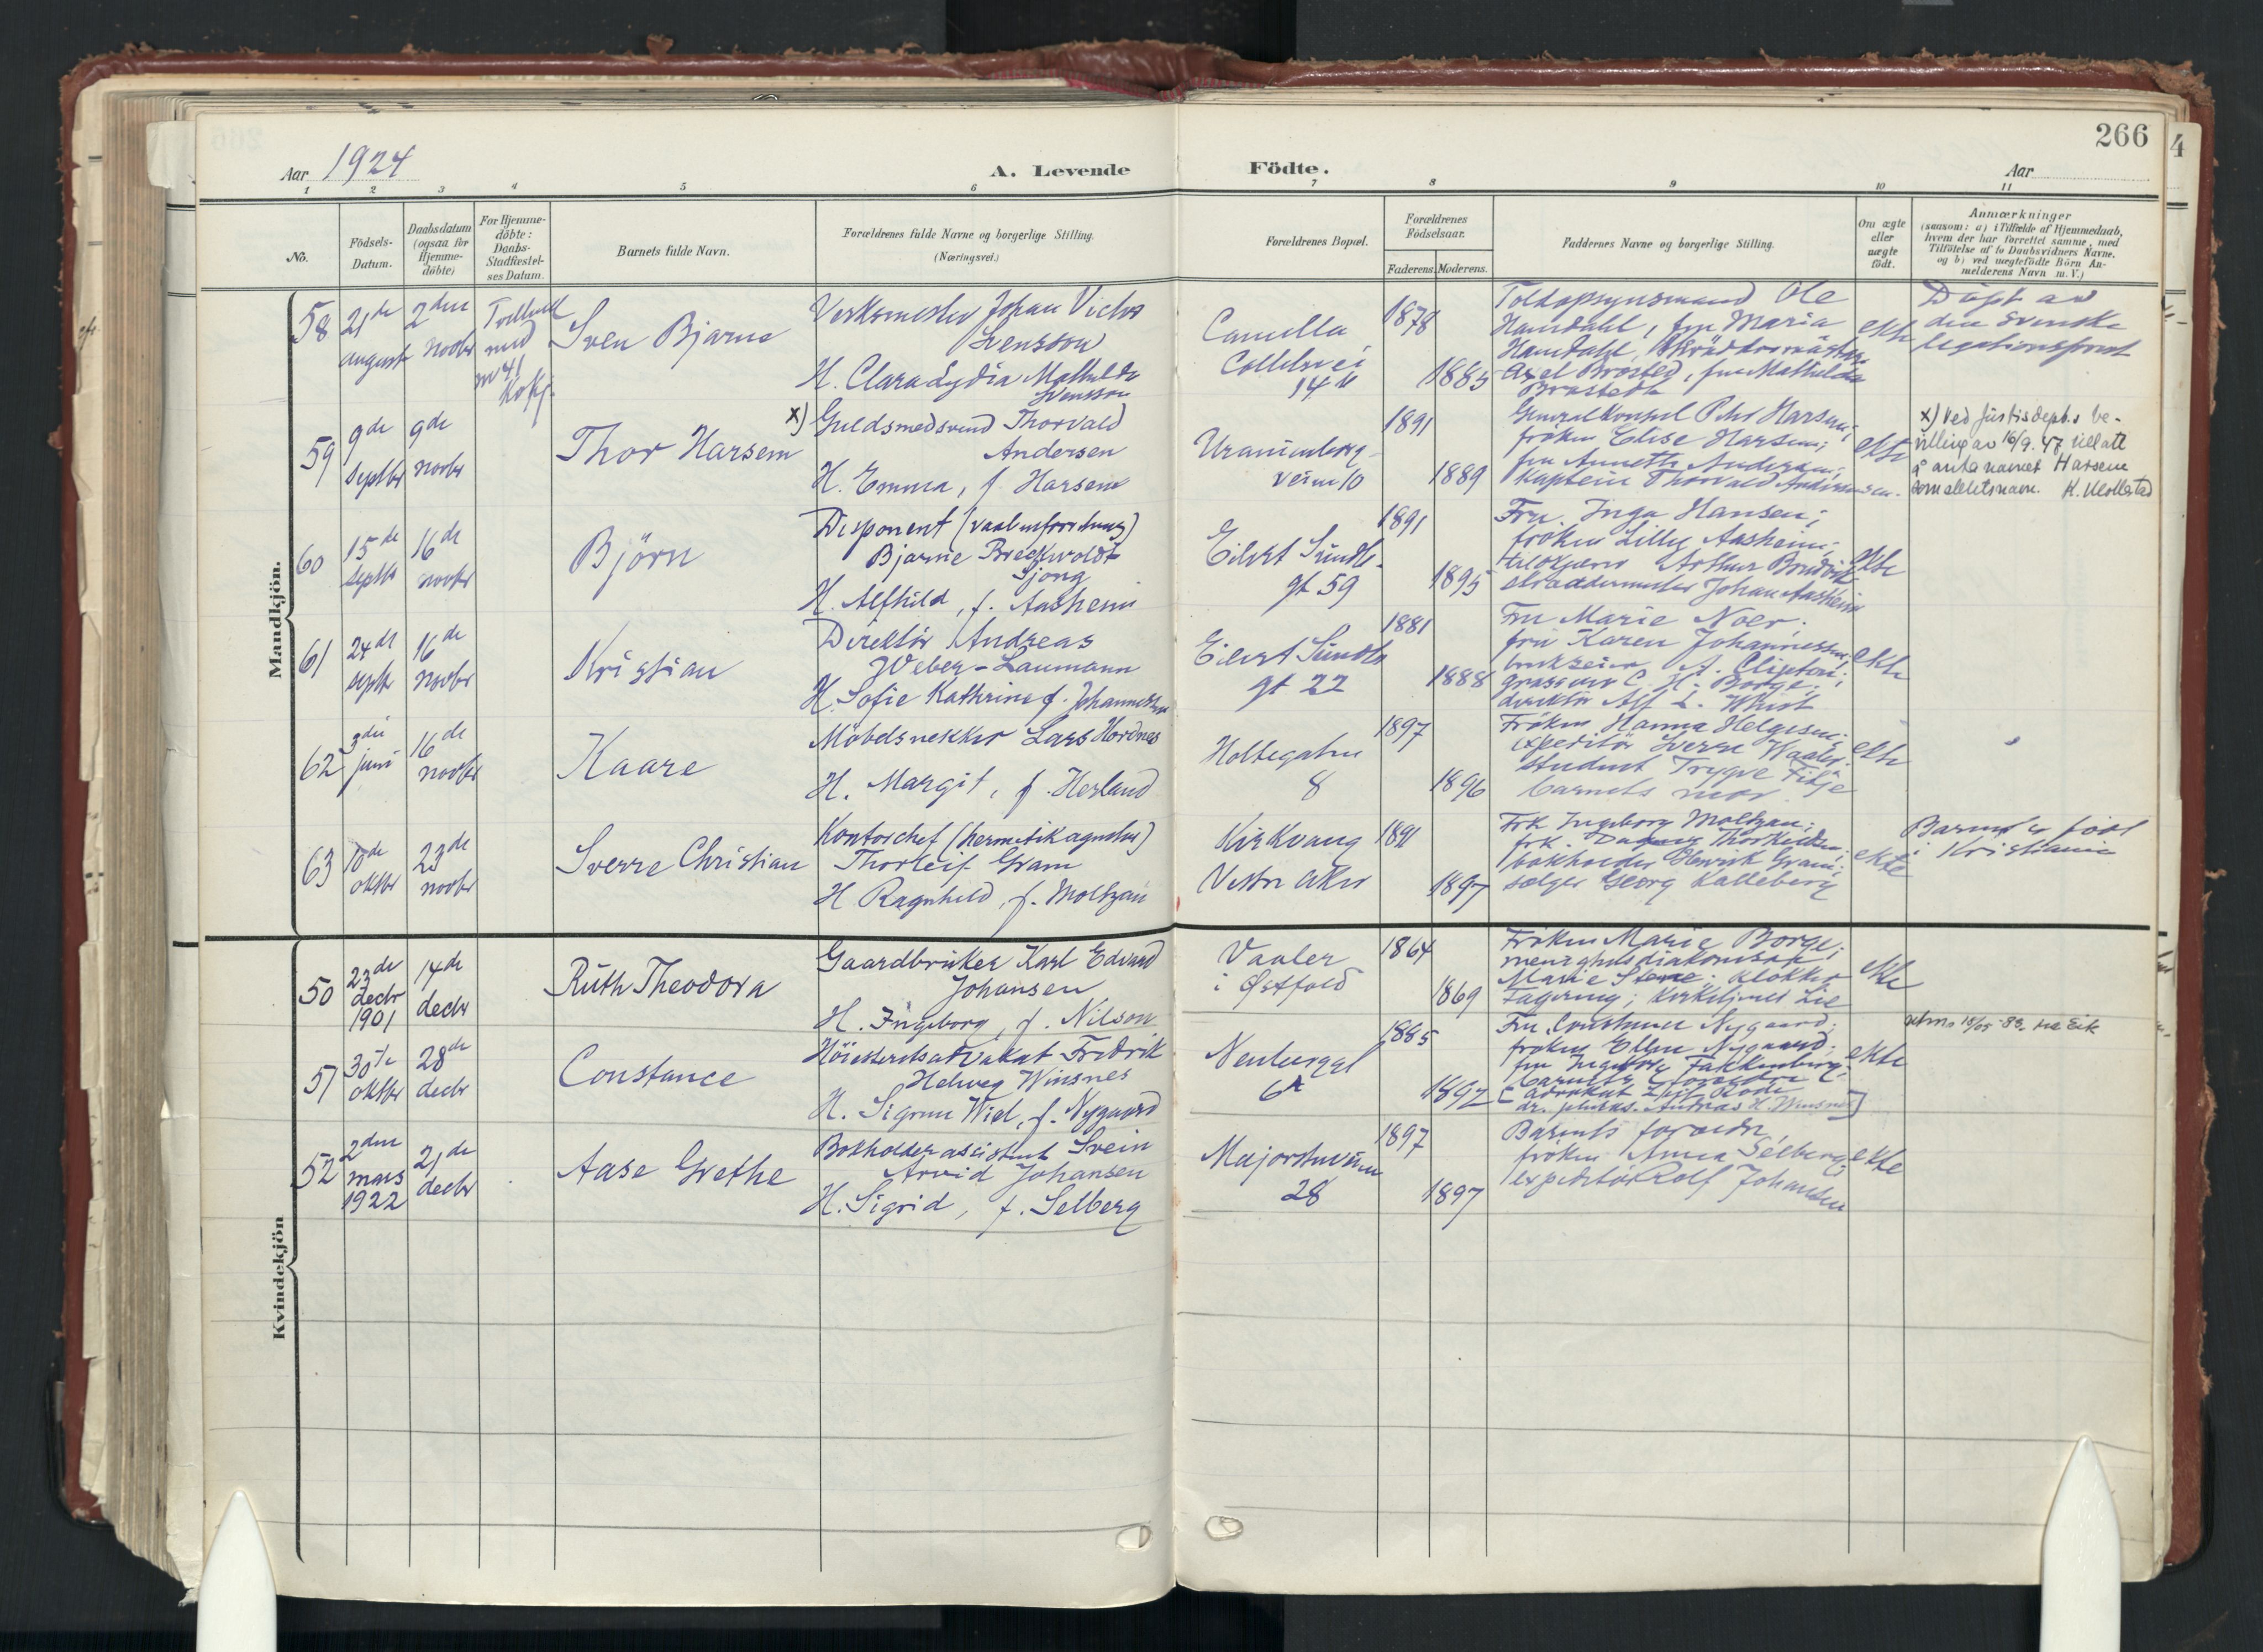 266
Aar 1924
A. Levende Födte.
Aar
1 2 3 4 5 6 7 8 9 10 11
No.
Födsels-
Datum.
Daabsdatum
(ogsaa for
Hjemme-
döbte)
For Hjemme-
döbte:
Daabs-
Stadfæstel-
ses Datum.
Barnets fulde Navn.
Forældrenes fulde Navne og borgerlige Stilling.
(Næringsvei.)
Forældrenes Bopæl.
Forældrenes
Födselsaar.
Faderens. Moderens.
Faddernes Navne og borgerlige Stilling.
Om ægte
eller
uægte
födt.
Anmærkninger
(saasom: a) i Tilfælde af Hjemmedaab,
hvem der har forrettet samme, med
Tilföielse af to Daabsvidners Navne,
og b) ved uægtefödte Börn An-
melderens Navn m. V.)
Mandkjön.
58
21de
august
2den
novbr
Sven Bjarne
Verksmester Johan Victor
Svensson
H. Clara Lydia Mathilda
Svensson
Camilla
Colletsvei
14
1878
1885
Toldopsynsmand Ole
Hamdahl, fru Maria
Hamdahl,
Axel Brosted, fru Mathilda
ekte
Döpt av
den svenske
legationsprest
59
9de
septbr
9de
novbr
Thor Harsem
x) Guldsmedsvend Thorvald
Andersen
H. Emma, f. Harsem
Uranienborg-
veien 10
1891
1889
Generalkonsul Peter Harsem;
fröken Elise Harsem;
fru Annette Andersen;
kaptein Thorvald Andersen.
ekte
x) Ved Justisdept.s be-
villing av 16/9. 47 till att
å anta navnet Harsem
som slektsnavn. K. Mollestad
60
15de
septbr
16de
novbr
Björn
Disponent (vaabenforretning)
Bjarne Breckwoldt
Sjong
H. Alfhild, f. Aasheim
Eilert Sundts
gt 59
1891
1895
Fru Inga Hansen;
fröken Lilly Aasheim;
Arthur
skræddermester Johan Aasheim
ekte
61
24de
septr
16de
novbr
Kristian
Direktör Andreas
Weber-Laumann
H. Sofie Kathrine f. Johannessen
Eilert Sundts
gt 22
1881
1888
Fru Marie Noer.
fru Karen Johannessen;
brukseier A. Clipton;
grosserer C. H. Borge;
direktör Alf L. Whist
ekte
62
3die
juni
16de
novbr
Kaare
Möbelsnekker Lars Hordnes
H. Margit, f. Hesland
Holtegaten
8
1897
1896
Fröken Hanna Helgesen;
expeditör Sverre Waaler.
student Trygve Fitje
barnets mor
ekte
63
10de
oktbr
23de
novbr
Sverre Christian
Kontorchef (hermetikagentur)
Thorleif Gram
H Ragnhild, f. Moltzau
Kirkvang
Vestre Aker
1891
1897
Frk Ingeborg Moltzau;
frk. Dagny Thorkildsen;
bokholder Henrik Gram;
sælger Georg Kalleberg
ekte
Barnet er född
i Kristiania
Kvindekjön
50
23de
decbr
1901
14de
decbr
Ruth Theodora
Gaardbruker Karl Edvard
Johansen
H. Ingeborg, f. Nilson
Vaaler
i Østfold
1864
1869
Fröken Marie Borge;
menighetsdiakonisse
Marie Stene; klokker
Fagering; kirketjener Lie
ekte
51
30te
oktbr
28de
decbr
Constance
Höiesteretsadvokat Fredrik
Helweg Winsnes
H. Sigrun Wiel, f. Nygaard
Neuberggt
6A
1885
1892
Fru Constance Nygaard;
fröken Ellen Nygaard;
fru Ingeborg Falkenberg;
barnets forældre
[advokat Leif Rode
dr. philos. Andreas H. Winsnes]
ekte
52
2den
mars
1922
21de
decbr
Aase Grethe
Bokholderassistent Svein
Arvid Johansen
H. Sigrid, f. Selberg
Majorstuveien
28
1897
1897
Barnets forældre,
fröken Anna Selberg;
expeditör Rolf Johansen
ekte